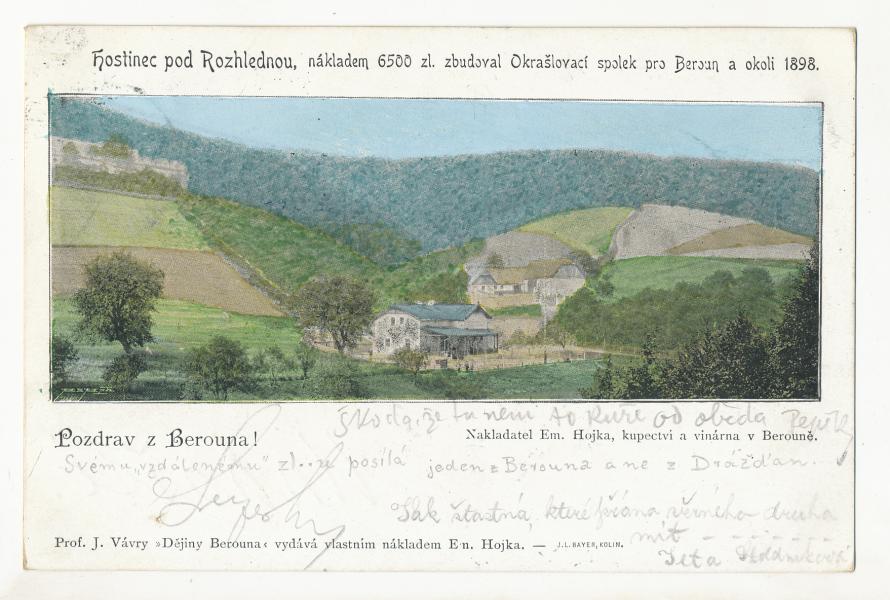 Hostinec pod Rozhlednou, nákladem 6500 zl. zbudoval Okrašlovací spolek pro Beroun a okolí 1898.
škoda, že tu není to kuře od oběda
Pozdrav z Berouna!
Nakladatel Em. Hojka, kupectví a vinárna v Berouně.
Svému „vzdálenému“ zl..zu posílá jeden z Berouna a ne z Drážďan.
Jak šťastná, které přáno věrného druha
mít - - - - - - -
Prof. J. Vávry »Dějiny Berouna« vydává vlastním nákladem Em. Hojka. — J. L. BAYER, KOLÍN.
Teta